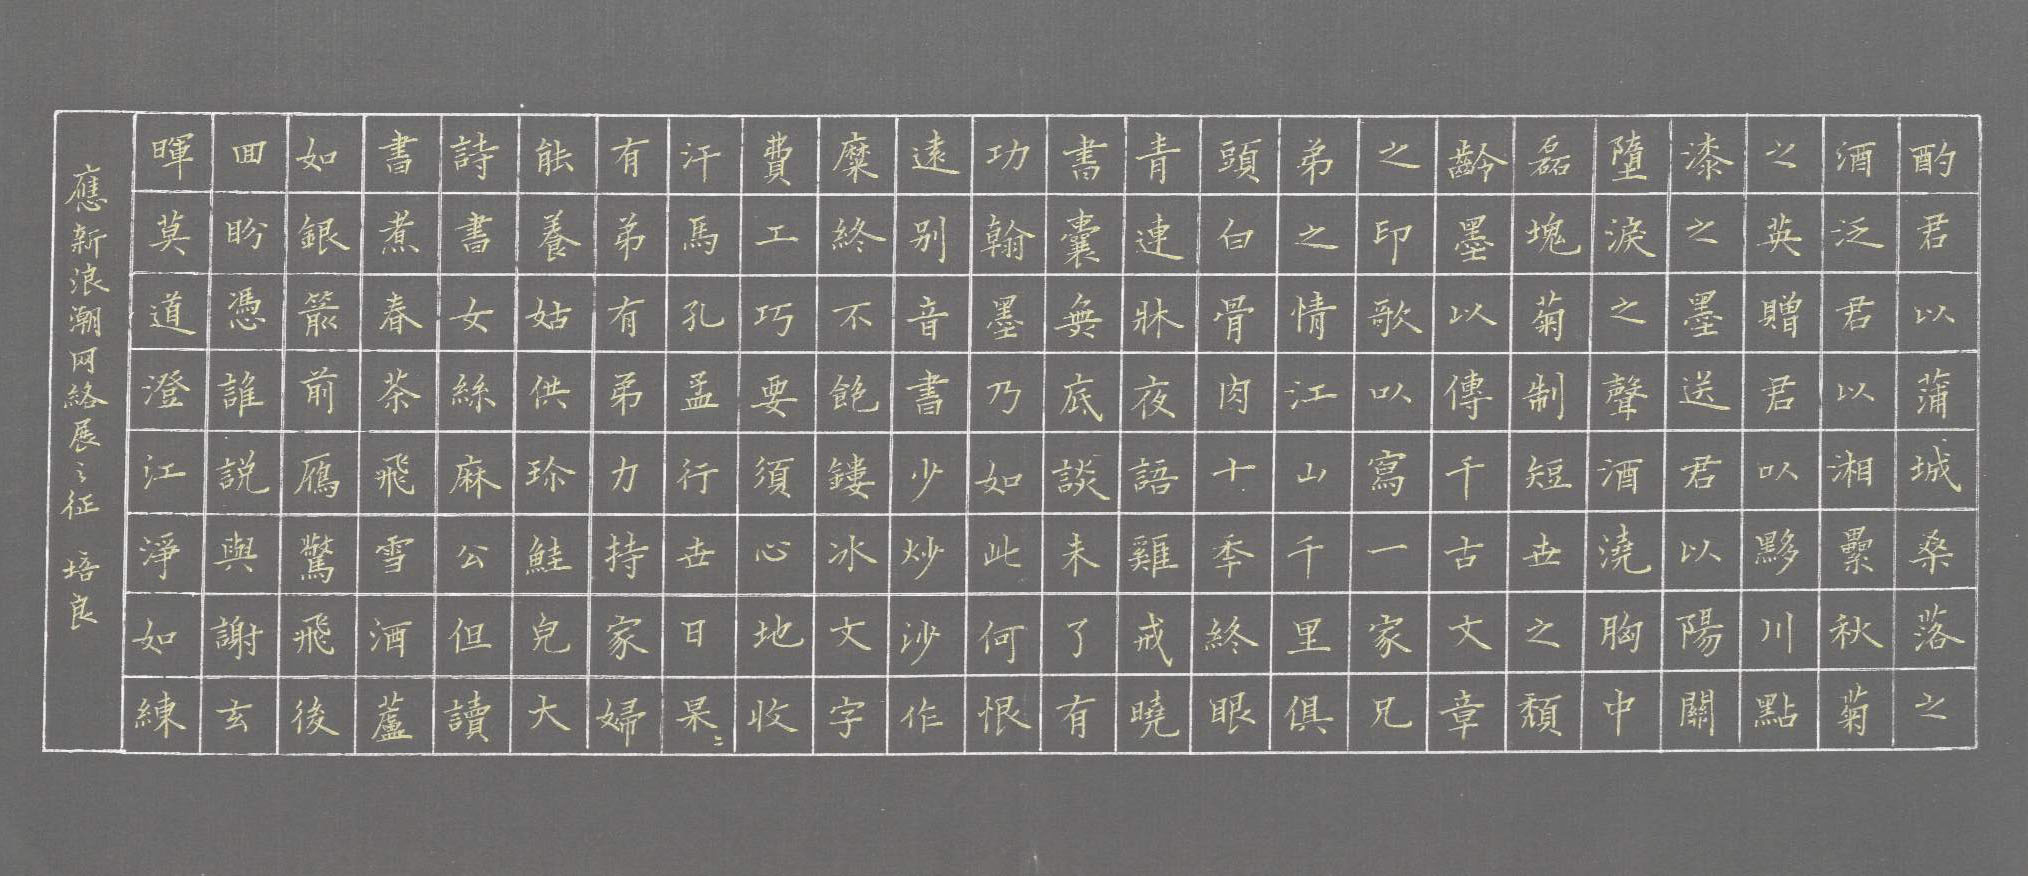 酌君以蒲城桑落之
酒泛君以湘纍秋菊
之英贈君以黟川點
漆之墨送君以陽關
墮淚之聲酒澆胸中
磊塊菊制短世之頹
齡墨以傳千古文章
之印歌以寫一家兄
弟之情江山千里俱
頭白骨肉十年終眼
青連牀夜語雞戒曉
書囊無底談未了有
功翰墨乃如此何恨
遠別音書少炒沙作
糜終不飽鏤冰文字
費工巧要須心地收
汗馬孔孟行世日杲〻
有弟有弟力持家婦
能養姑供珍鮭兒大
詩書女絲麻公但讀
書煮春茶飛雪酒蘆
如銀箭前鴈驚飛後
回盼憑誰説與謝玄
暉莫道澄江淨如練
應新浪潮网絡展之征 培良